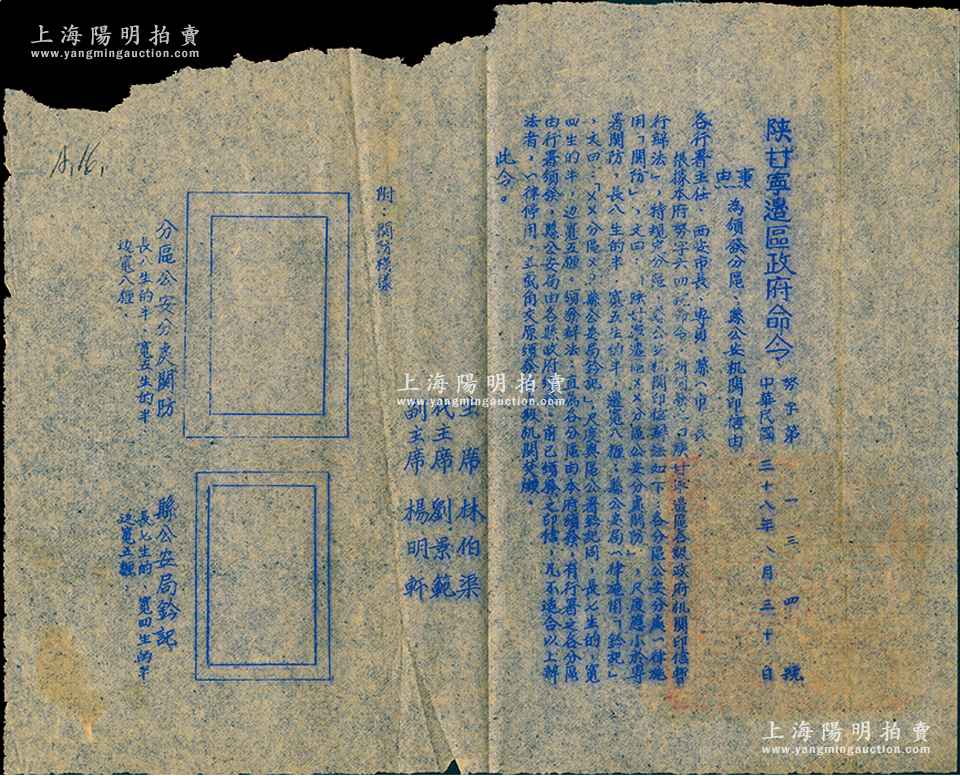 上海陽明拍賣
www.yangmingauction.com
陕甘寧邊區政府命令
努字第一三四號
中華民國三十八年八月三十日
事由
為頒發分區、縣公安机關印信由
各行署主任、西安市長、專員、縣(市)長:
根據本府努字六四號命令
陕甘寧邊區各級政府机關印信暫
行辦法」,特規定分區、縣公安机關印信辦法如下:各分區公安分處一律施
用「關防」,文曰:「陕甘寧邊區××分區公安分處關防」,尺度應小於專
署關防,長八生的半,寬五生的半,邊寬八糎;縣公安局一律施用「鈐記」
,文曰:「××分區××縣公安局鈐記」尺度與區公署鈐記同,長七生的,寬
四生的半,边寬五糎。頒發辦法,直屬各分區由本府頒發,有行署之各分區
由行署頒發,縣公安局由各縣政府頒發。前已頒發之印信,凡不適合以上辦
法者,一律停用,並截角交原頒發
級机關焚燬。
此令。
主席 林伯渠
代主席 劉景範
副主席 楊明軒
附:關防模樣
分區公安分處關防
長八生的半、寬五生的半、
边寬八糎.
縣公安局鈐記
長七生的、寬四生的半
边寬五糎.
上海陽明拍賣
www.yangmingauction.com
上海陽明拍賣
www.yangmingauction.com